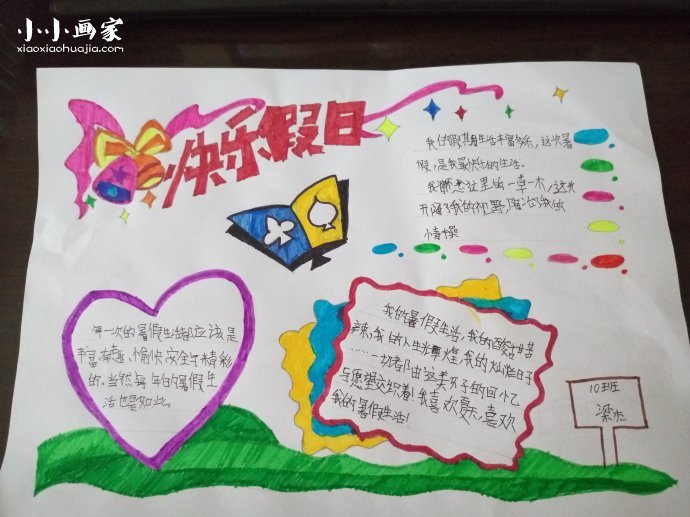 小小画家
xiaoxiaohuajia.com
快乐假日
我的假期生活丰富多采,这次暑
假,是我最快乐的生活。
我 想这里的一草一木,这
开阔了我的视野,陶冶我的
情操
每一次的暑假生活都应该是
丰富有趣、愉快安全于精彩
的.当然每年的暑假生
活也是如此。
我的暑假生活,我的酸甜苦
辣,我的人生辉煌,我的灿烂日子
……一切都由这美好的回忆
与愿望交织着!我喜欢夏天,喜欢
我的暑假生活!
10班
梁杰